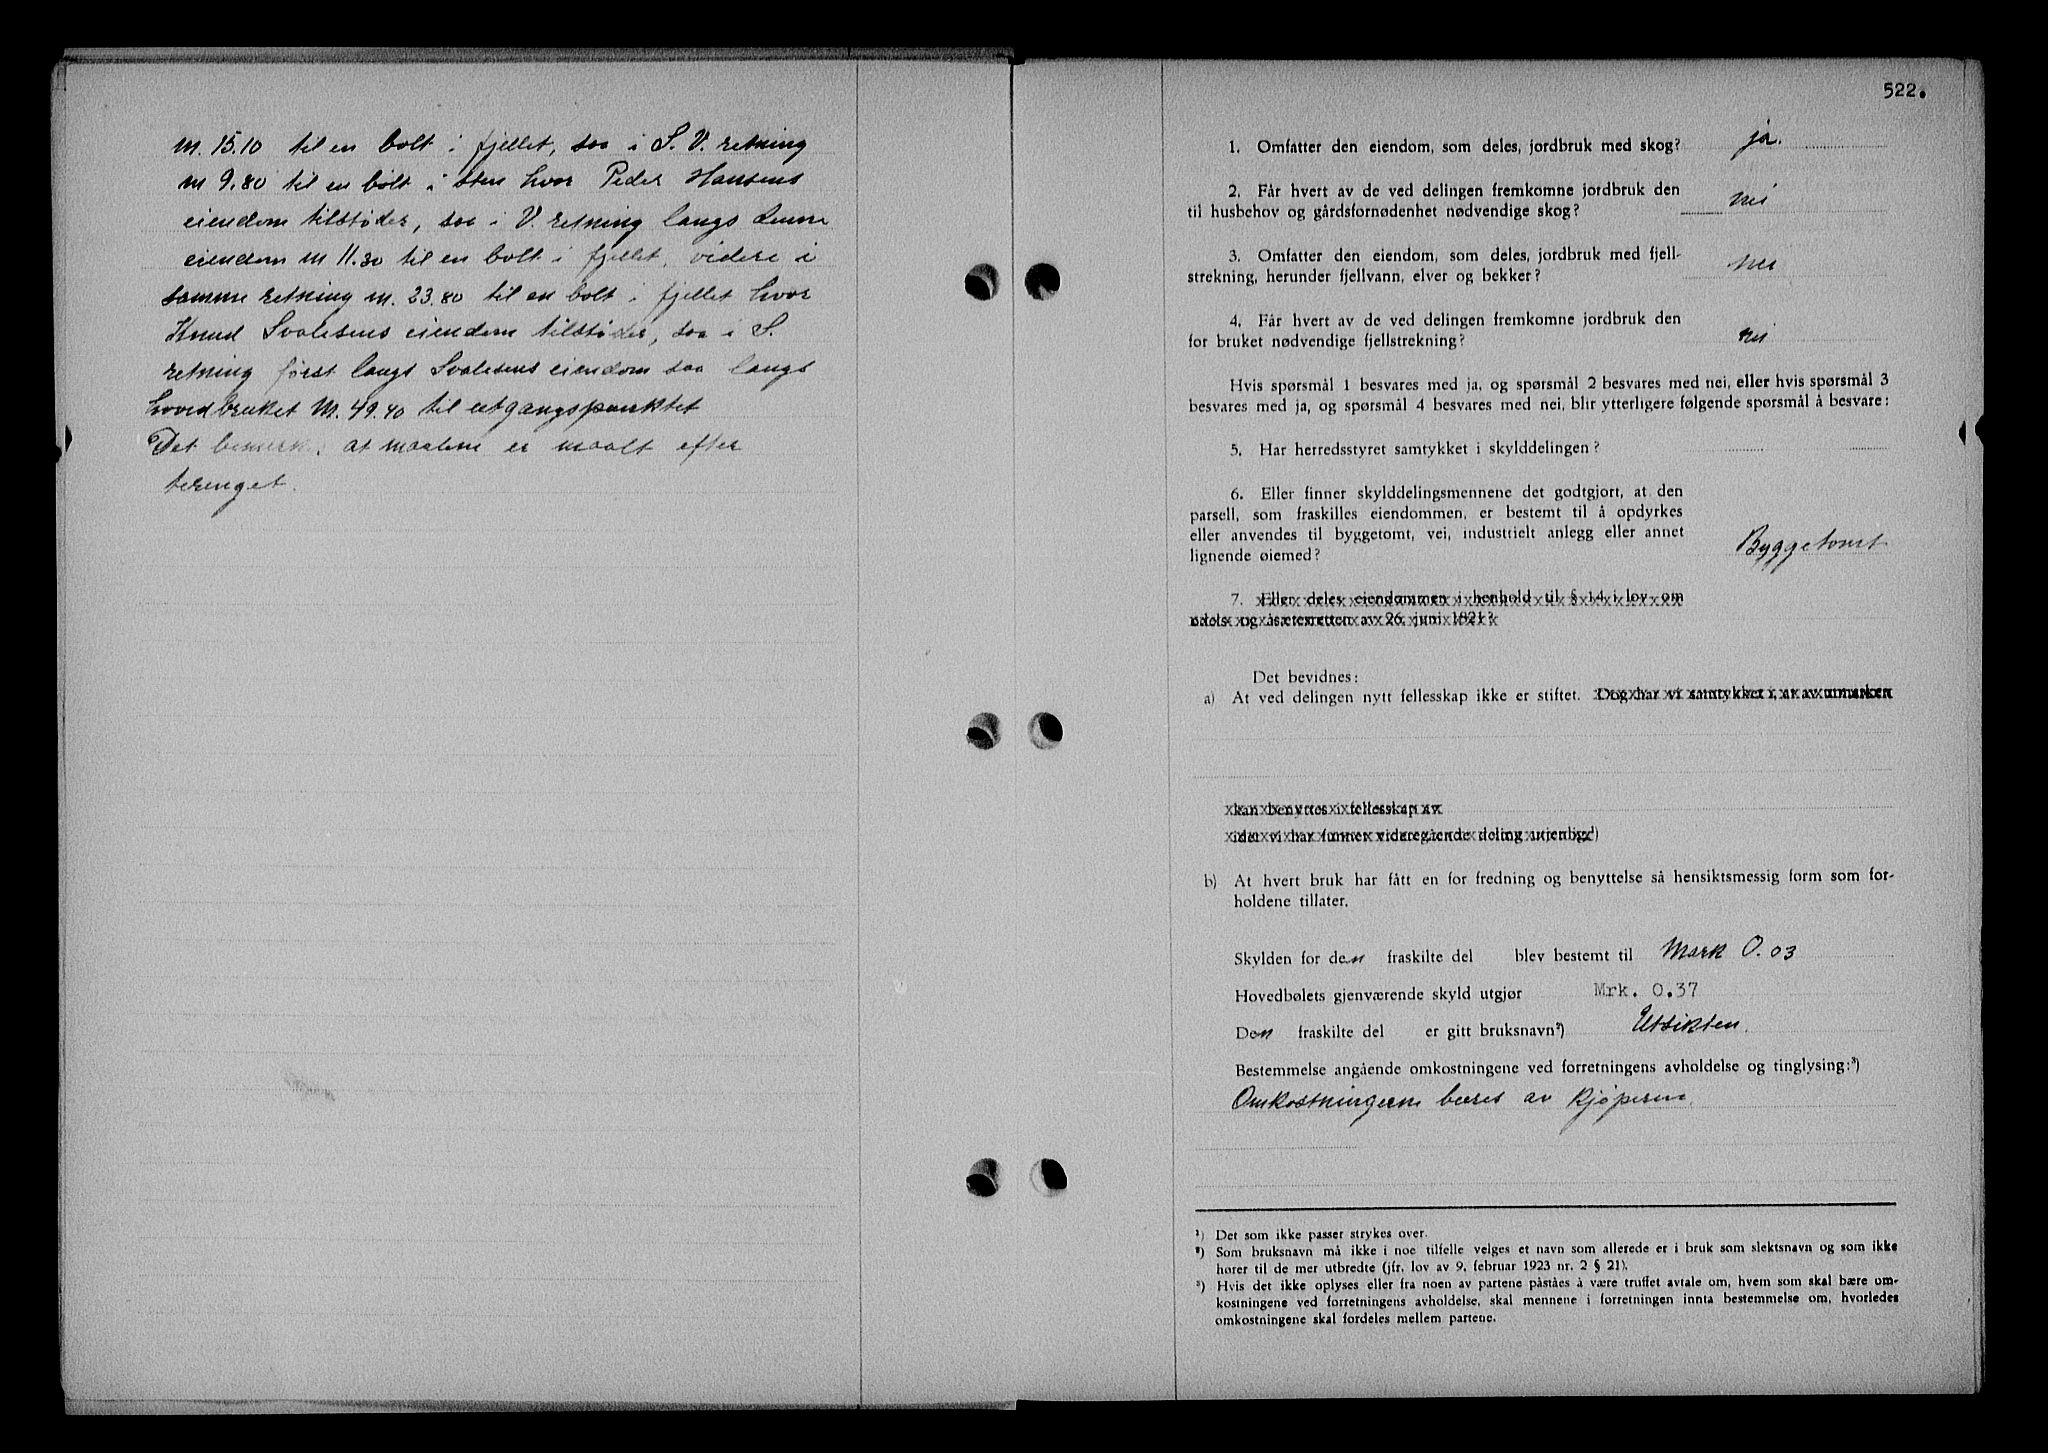 m. 15.10 til en bolt i fjellet, saa i S. V. retning
m 9.80 til en bolt i sten hvor Peder Hansens
eiendom tilstøder, saa i V. retning langs denne
eiendom m 11.30 til en bolt i fjellet, videre i
samme retning m. 23.80 til en bolt i fjellet hvor
Knud Svalesens eiendom tilstøder, saa i S.
retning først langs Svalesens eiendom saa langs
hovedbruket m. 49.40 til utgangspunktet
Det bemerk. at maalene er maalt efter
terenget.
522.
1. Omfatter den eiendom, som deles, jordbruk med skog? ja.
2. Får hvert av de ved delingen fremkomne jordbruk den
til husbehov og gårdsfornødenhet nødvendige skog? nei
3. Omfatter den eiendom, som deles, jordbruk med fjell-
strekning, herunder fjellvann, elver og bekker? nei
4. Får hvert av de ved delingen fremkomne jordbruk den
for bruket nødvendige fjellstrekning? nei
Hvis spørsmål 1 besvares med ja, og spørsmål 2 besvares med nei, eller hvis spørsmål 3
besvares med ja, og spørsmål 4 besvares med nei, blir ytterligere følgende spørsmål å besvare:
5. Har herredsstyret samtykket i skylddelingen?
6. Eller finner skylddelingsmennene det godtgjort, at den
parsell, som fraskilles eiendommen, er bestemt til å opdyrkes
eller anvendes til byggetomt, vei, industrielt anlegg eller annet
lignende øiemed? Byggetomt
7. Eller deles eiendommen i henhold til § 14 i lov om
odels- og åsætesretten av 26. juni 1821?
Det bevidnes:
a) At ved delingen nytt fellesskap ikke er stiftet. Dog har vi samtykket i, at av utmarken
kan benyttes i fellesskap av
idet vi har funnet videregående deling utjenlig¹)
b) At hvert bruk har fått en for fredning og benyttelse så hensiktsmessig form som for-
holdene tillater.
Skylden for den fraskilte del blev bestemt til Mark 0.03
Hovedbølets gjenværende skyld utgjør Mrk. 0.37
Den fraskilte del er gitt bruksnavn²) Utsikten.
Bestemmelse angående omkostningene ved forretningens avholdelse og tinglysing:³)
Omkostningerne bæres av kjøperen.
¹) Det som ikke passer strykes over.
²) Som bruksnavn må ikke i noe tilfelle velges et navn som allerede er i bruk som slektsnavn og som ikke
hører til de mer utbredte (jfr. lov av 9. februar 1923 nr. 2 § 21).
³) Hvis det ikke oplyses eller fra noen av partene påståes å være truffet avtale om, hvem som skal bære om-
kostningene ved forretningens avholdelse, skal mennene i forretningen innta bestemmelse om, hvorledes
omkostningene skal fordeles mellem partene.